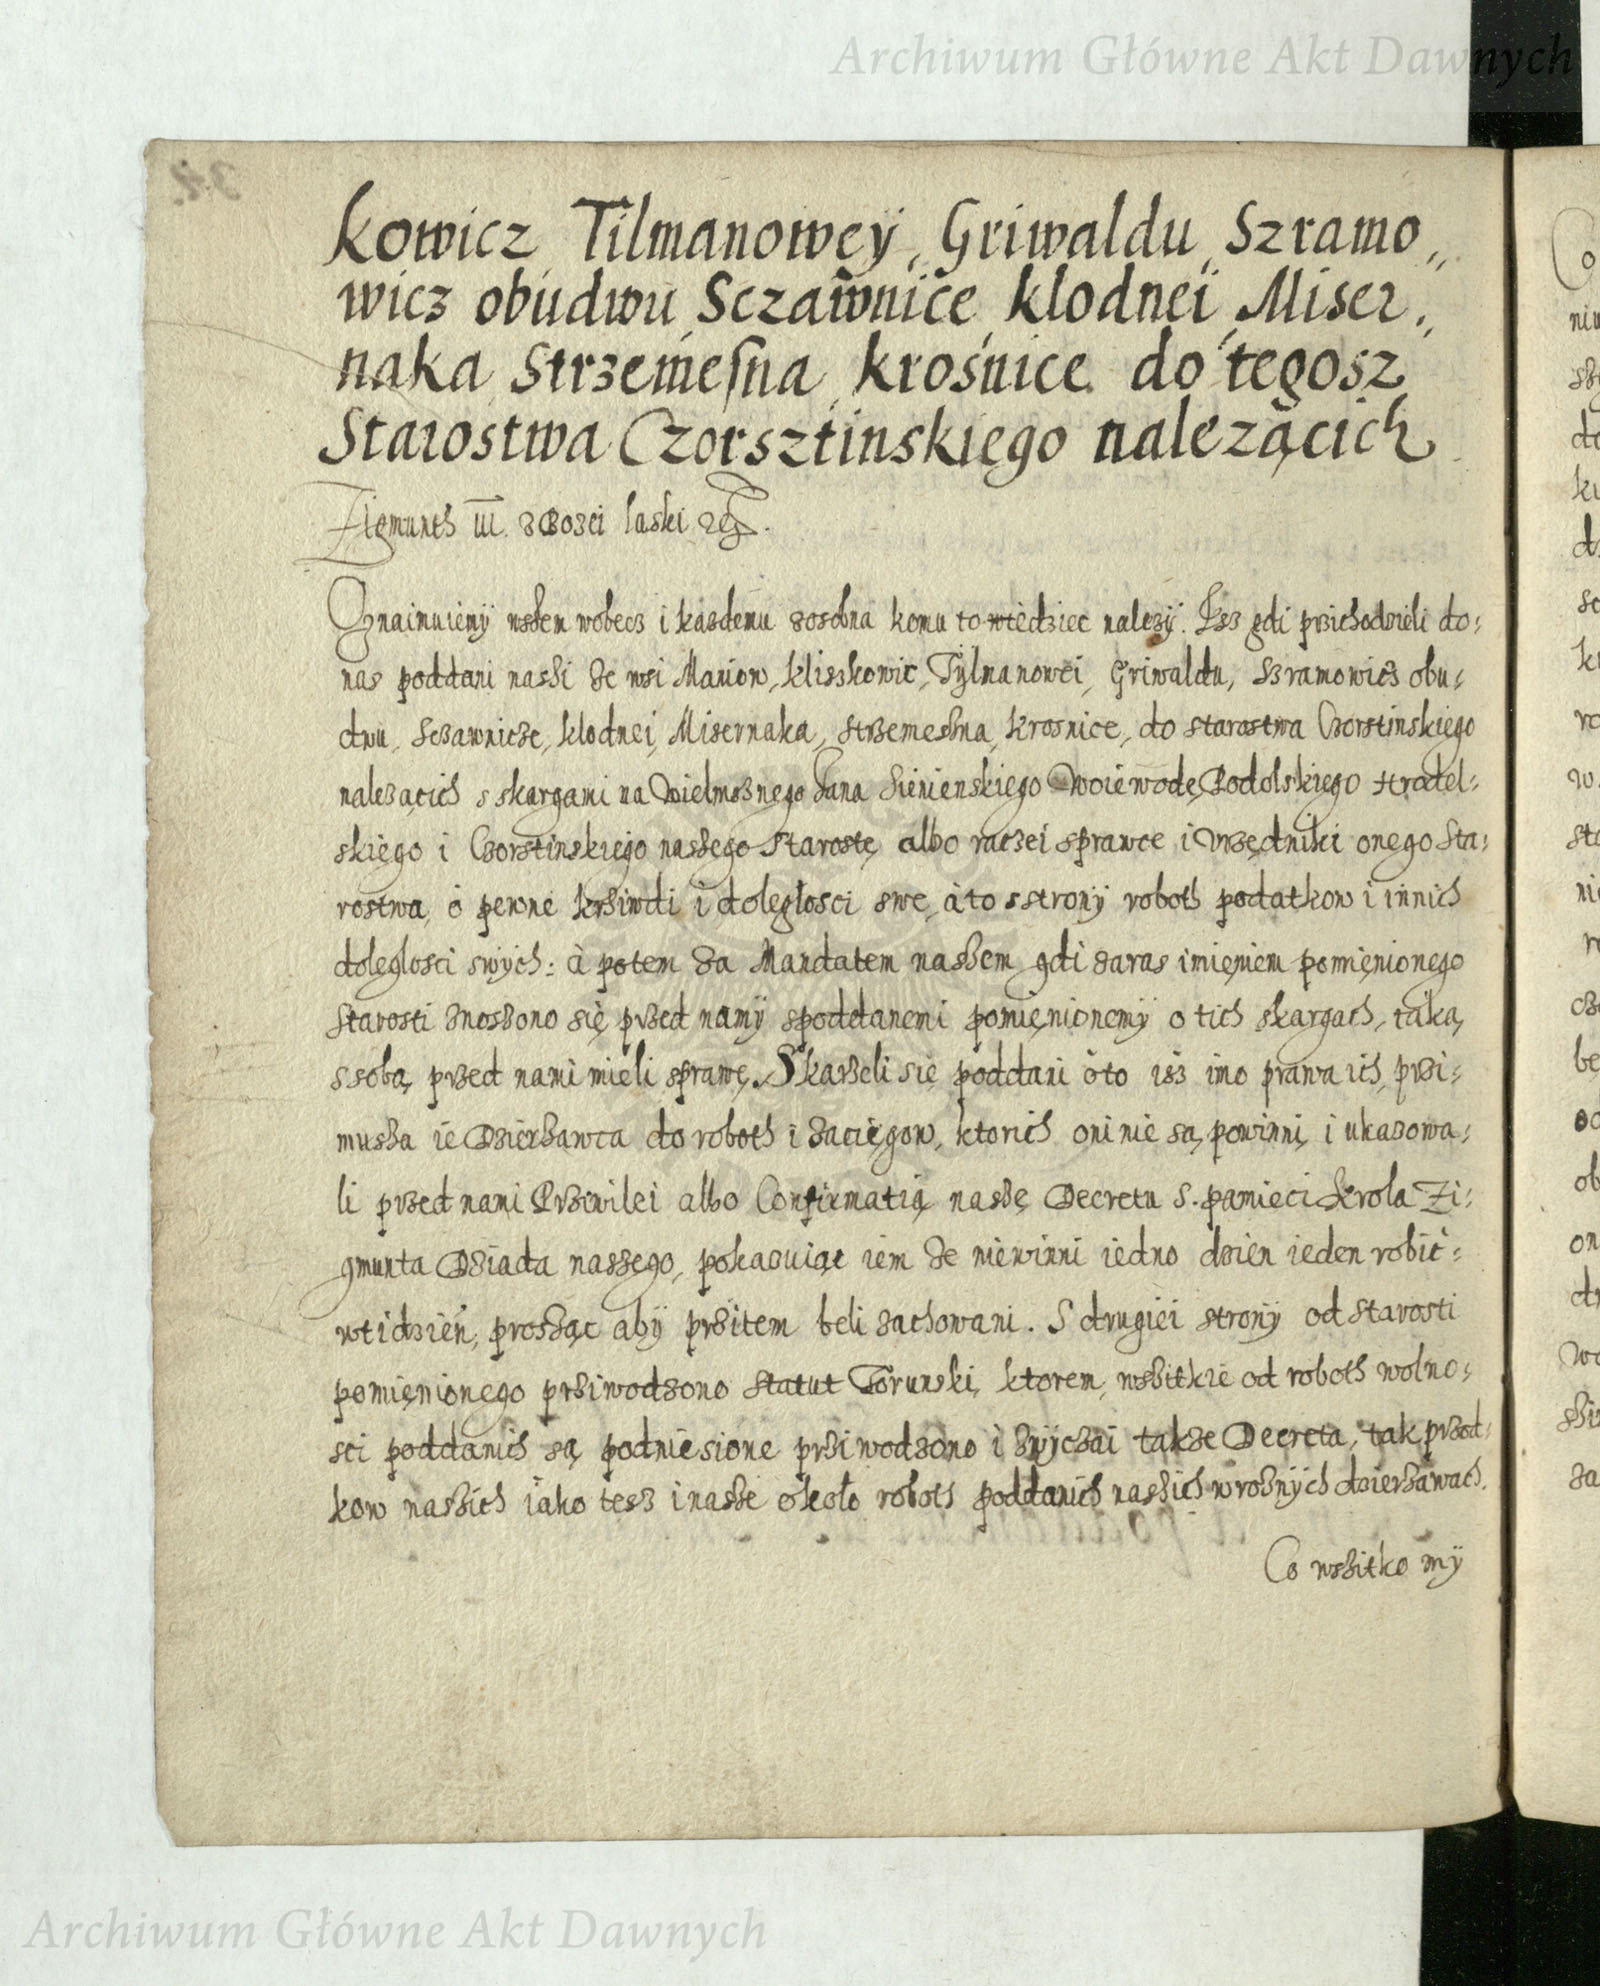 Archiwum Główne Akt Dawnych
kowicz Tilmanoweÿ, Griwaldu, Szramo„
wicz obudwu Sczawnice, klodnei, Miser„
naka, Strzemesna, krośnice do tegosz
Starostwa Czorsztinskiego nalezącich
Zigmunth III z Bozei laski
Oznaimuiemÿ wszem wobecz i kazdemu zosobna komu to wiedziec nalezÿ. Isz gdi przichodzieli do:
nas poddani nassi ze wsi Maniow, kliszkowic, Tÿlmanowei, Griwaldu, Szramowicz obu:
dwu, Sczawnicze, klodnei, Misernaka, Strzemeszna, krosnice, do starostwa Czorstinskiego
nalezącich s skargami na Wielmoznego Jana Sienienskiego Woiewodę Podolskiego Hrodel:
skiego i Czorstinskiego naszego Starostę albo raczei sprawce i Vrzędniki onego Sta:
rostwa, o pewne krziwdi i doległosci swe, à to s strony roboth podatkow i innich
doleglosci swych: à potem za Mandatem naszem gdi zaras imieniem pomięnionego
Starosti znoszono się przed namÿ s poddanemi pomięnionemÿ o tich skargach, taką
s sobą przed nami mieli sprawę. Skarzeli się poddani o to isz imo prawa ich, przi:
musza ie Dzierzawca do roboth i zaciągow, ktorich oni nie są powinni, i ukazowa:
li przed nami Przivilei albo Confirmatią naszę Decretu S. pamieci krola Zi:
gmunta Dziada naszego, pokazuiąc iem ze niewinni iedno dzien ieden robic:
w tidzień, prosząc abÿ przitem beli zachowani. S drugiei stronÿ od starosti
pomięnionego prziwodzono Statut Torunski, ktorem, wszitkie od roboth wolno:
sci poddanich są podniesione prziwodzono i zwyczai takze Decreta, tak przod:
kow naszich iako tesz i nasze około roboth poddanich naszich w roznÿch dzierzawach.
Co wszitko mÿ
Archiwum Główne Akt Dawnych